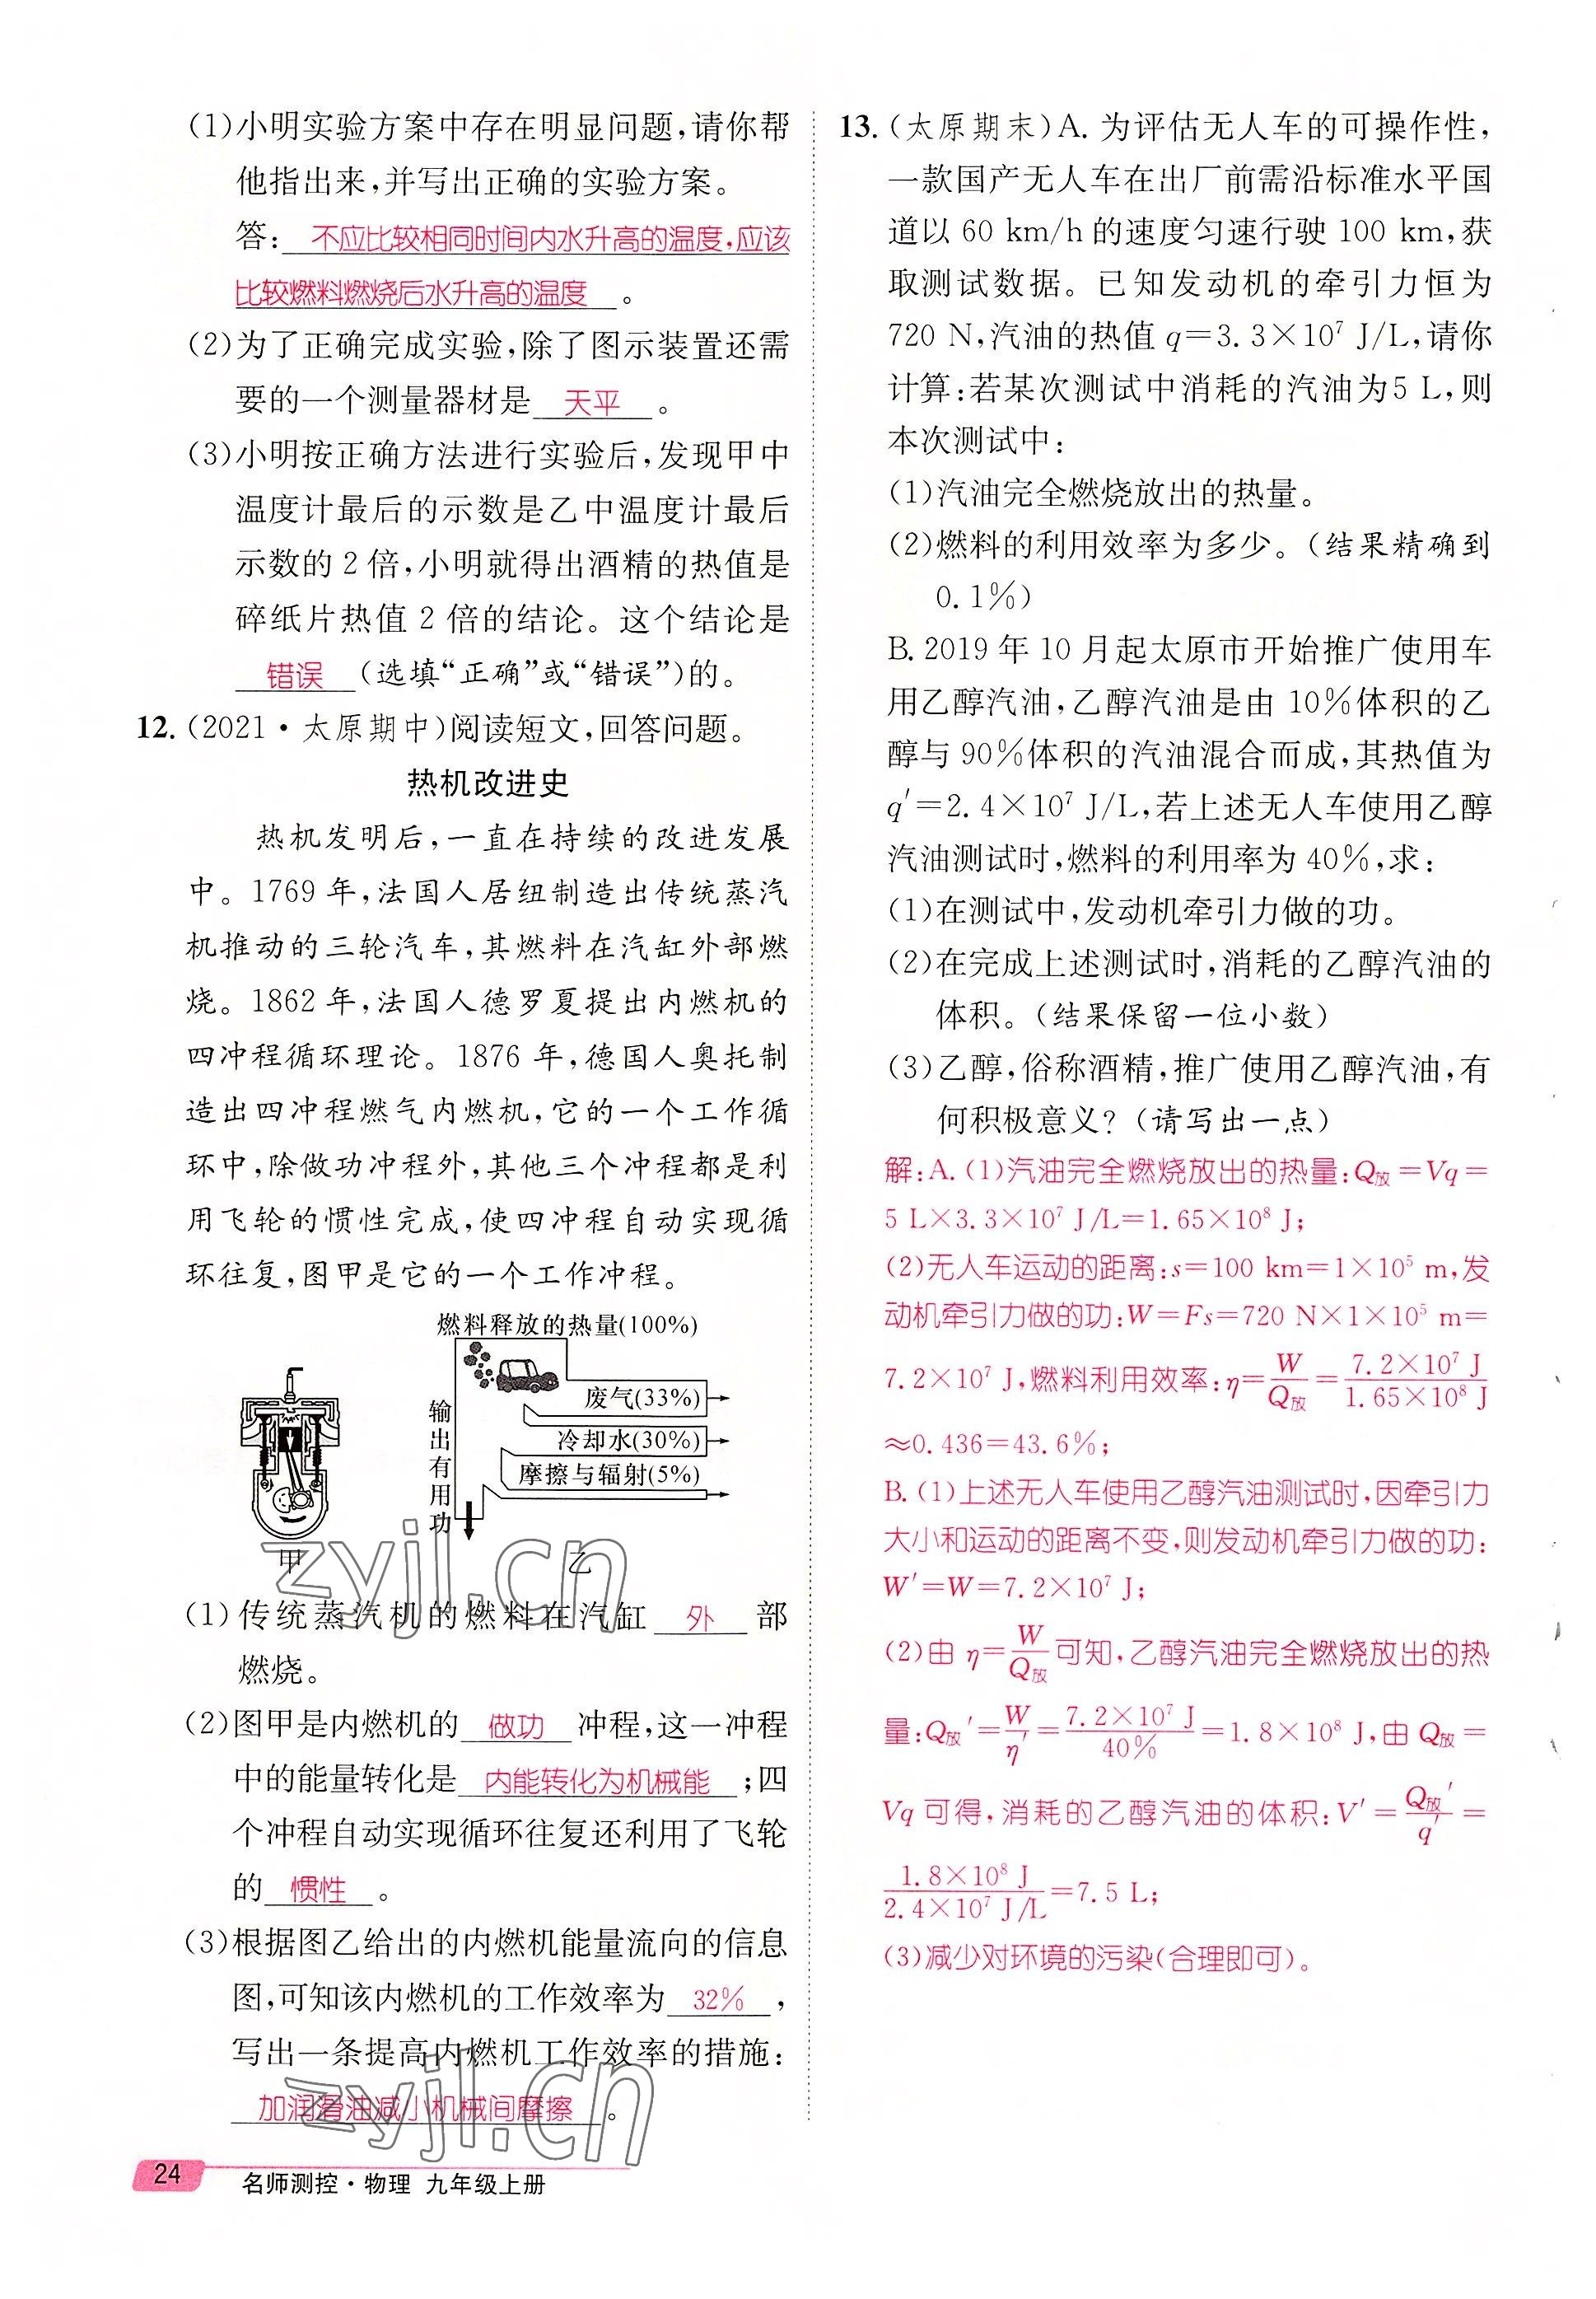 (1)小明实验方案中存在明显问题,请你帮
他指出来,并写出正确的实验方案。
答: 不应比较相同时间内水升高的温度,应该
比较燃料燃烧后水升高的温度 。
(2)为了正确完成实验,除了图示装置还需
要的一个测量器材是 天平 。
(3)小明按正确方法进行实验后,发现甲中
温度计最后的示数是乙中温度计最后
示数的 2 倍,小明就得出酒精的热值是
碎纸片热值 2 倍的结论。这个结论是
错误 (选填“正确”或“错误”)的。
12.(2021·太原期中)阅读短文,回答问题。
热机改进史
热机发明后,一直在持续的改进发展
中。1769 年,法国人居纽制造出传统蒸汽
机推动的三轮汽车,其燃料在汽缸外部燃
烧。1862 年,法国人德罗夏提出内燃机的
四冲程循环理论。1876 年,德国人奥托制
造出四冲程燃气内燃机,它的一个工作循
环中,除做功冲程外,其他三个冲程都是利
用飞轮的惯性完成,使四冲程自动实现循
环往复,图甲是它的一个工作冲程。
燃料释放的热量(100%)
废气(33%)
冷却水(30%)
摩擦与辐射(5%)
输出有用功
甲
乙
zyjl.cn
(1)传统蒸汽机的燃料在汽缸 外 部
燃烧。
(2)图甲是内燃机的 做功 冲程,这一冲程
中的能量转化是 内能转化为机械能 ;四
个冲程自动实现循环往复还利用了飞轮
的 惯性 。
(3)根据图乙给出的内燃机能量流向的信息
图,可知该内燃机的工作效率为 32% ,
写出一条提高内燃机工作效率的措施:
加润滑油减小机械间摩擦 。
zyjl.cn
24
名师测控·物理 九年级上册
13.(太原期末)A. 为评估无人车的可操作性,
一款国产无人车在出厂前需沿标准水平国
道以 60 km/h 的速度匀速行驶 100 km,获
取测试数据。已知发动机的牵引力恒为
720 N,汽油的热值 q=3.3×10⁷ J/L,请你
计算:若某次测试中消耗的汽油为5 L,则
本次测试中:
(1)汽油完全燃烧放出的热量。
(2)燃料的利用效率为多少。(结果精确到
0.1%)
B. 2019 年 10 月起太原市开始推广使用车
用乙醇汽油,乙醇汽油是由 10%体积的乙
醇与 90%体积的汽油混合而成,其热值为
q′=2.4×10⁷ J/L,若上述无人车使用乙醇
汽油测试时,燃料的利用率为 40%,求:
(1)在测试中,发动机牵引力做的功。
(2)在完成上述测试时,消耗的乙醇汽油的
体积。(结果保留一位小数)
(3)乙醇,俗称酒精,推广使用乙醇汽油,有
何积极意义?(请写出一点)
解:A.(1)汽油完全燃烧放出的热量:Q放=Vq=
5 L×3.3×10⁷ J/L=1.65×10⁸ J;
(2)无人车运动的距离:s=100 km=1×10⁵ m,发
动机牵引力做的功:W=Fs=720 N×1×10⁵ m=
7.2×10⁷ J,燃料利用效率:η=W/Q放=7.2×10⁷ J/1.65×10⁸ J
≈0.436=43.6%;
B.(1)上述无人车使用乙醇汽油测试时,因牵引力
大小和运动的距离不变,则发动机牵引力做的功:
W′=W=7.2×10⁷ J;
(2)由 η=W/Q放可知,乙醇汽油完全燃烧放出的热
量:Q放′=W/η′=7.2×10⁷ J/40%=1.8×10⁸ J,由 Q放=
Vq 可得,消耗的乙醇汽油的体积:V′=Q放′/q′=
1.8×10⁸ J/2.4×10⁷ J/L=7.5 L;
(3)减少对环境的污染(合理即可)。